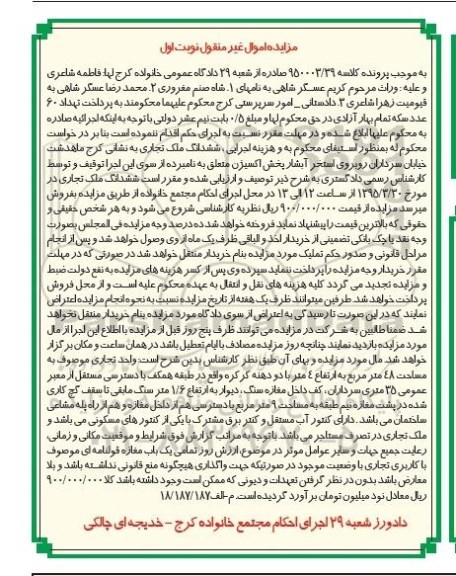 مزایده اموال غیر منقول نوبت اول
به موجب پرونده کلاسه ۹۵۰۰۰۳/۳۹ صادره از شعبه ۲۹ دادگاه عمومی خانواده کرج لها: فاطمه شاعری
و علیه : وراث مرحوم کریم عسگر شاهی به نامهای ۱. شاه صنم مغروری ۲. محمد رضا عسگر شاهی به
قیومیت زهرا شاعری ۳. دادستانی _ امور سرپرستی کرج محکوم علیهما محکومند به پرداخت تهداد ۶۰
عدد سکه تمام بهار آزادی در حق محکوم لها و مبلغ ۰/۵ بابت نیم عشر دولتی با توجه به اینکه اجرائیه صادره
به محکوم علیها ابلاغ شده و در مهلت مقرر نسبت به اجرای حکم اقدام ننموده است بنا بر در خواست
محکوم له بمنظور استیفای محکوم به و هزینه اجرایی ، ششدانگ ملک تجاری به نشانی کرج ماهدشت
خیابان سرداران روبروی استخر آبشار پخش اکسیژن متعلق به نامبرده از سوی این اجرا توقیف و توسط
کارشناس رسمی دادگستری به شرح ذیر توصیف و ارزیابی شده و مقرر است ششدانگ ملک تجاری در
مورخ ۱۳۹۵/۳/۳۰ از ساعت ۱۲ الی ۱۳ در محل اجرای احکام مجتمع خانواده از طریق مزایده بفروش
میرسد مزایده از قیمت ۹۰۰/۰۰۰/۰۰۰ ریال نظریه کارشناسی شروع می شود و به هر شخص حقیقی و
حقوقی که بالاترین قیمت را پیشنهاد نماید فروخته خواهد شد ده درصد وجه مزایده فی المجلس بصورت
وجه نقد یا چک بانکی تضمینی از خریدار اخذ و الباقی ظرف یک ماه از وی وصول خواهد شد و پس از انجام
مراحل قانونی و صدور حکم تملیک مورد مزایده بنام خریدار منتقل خواهد شد در صورتی که در مهلت
مقرر خریدار وجه مزایده را پرداخت ننماید سپرده وی پس از کسر هزینه های مزایده به نفع دولت ضبط
و مزایده تجدید می گردد کلیه هزینه های نقل و انتقال به عهده محکوم علیه است و از محل فروش
پرداخت خواهد شد. طرفین میتوانند ظرف یک هفته از تاریخ مزایده نسبت به نحوه انجام مزایده اعتراض
نمایند که در این صورت تا رسیدگی به اعتراض از سوی دادگاه مورد مزایده بنام خریدار منتقل نخواهد
شد. ضمنا طالبین به شرکت در مزایده می توانند ظرف پنج روز قبل از مزایده با اطلاع این اجرا از مال
مورد مزایده بازدید نمایند چنانچه روز مزایده مصادف با ایام تعطیل باشد در همان ساعت و مکان برگزار
خواهد شد. مال مورد مزایده و بهای آن طبق نظر کارشناس بدین شرح است: واحد تجاری موصوف به
مساحت ۴۸ متر مربع به ارتفاع ۴ متر با دو دهنه کر کره واقع در طبقه همکف با دسترسی مستقل از معبر
عمومی ۳۵ متری سرداران ، کف داخل مغازه سنگ ، دیوار به ارتفاع ۱/۶ متر سنگ مابقی تا سقف گچ کاری
شده در پشت مغازه نیم طبقه به مساحت ۹ متر مربع با دسترسی هم از داخل مغازه و هم از راه پله مشاعی
ساختمان می باشد . دارای کنتور آب مستقل و کنتر برق مشترک با یکی از کنتور های مسکونی می باشد و
ملک تجاری در تصرف مستاجر می باشد. با توجه به مراتب گزارش فوق شرایط و موقعیت مکانی و زمانی،
رعایت جمیع جهات و سایر عوامل موثر در موضوع، ارزش روز تمامی یک باب مغازه قولنامه ای موصوف
با کاربری تجاری با وضعیت موجود در صورتیکه جهت واگذاری هیچگونه منع قانونی نداشته باشد و بلا
معارض باشد بدون در نظر گرفتن تعهدات و دیونی که ممکن است وجود داشته باشد کلا ۹۰۰/۰۰۰/۰۰۰
ریال معادل نود میلیون تومان بر آورد گردیده است. م-الف ۱۸/۱۸۷/۱۸۷
دادورز شعبه ۲۹ اجرای احکام مجتمع خانواده کرج – خدیجه ای چالکی